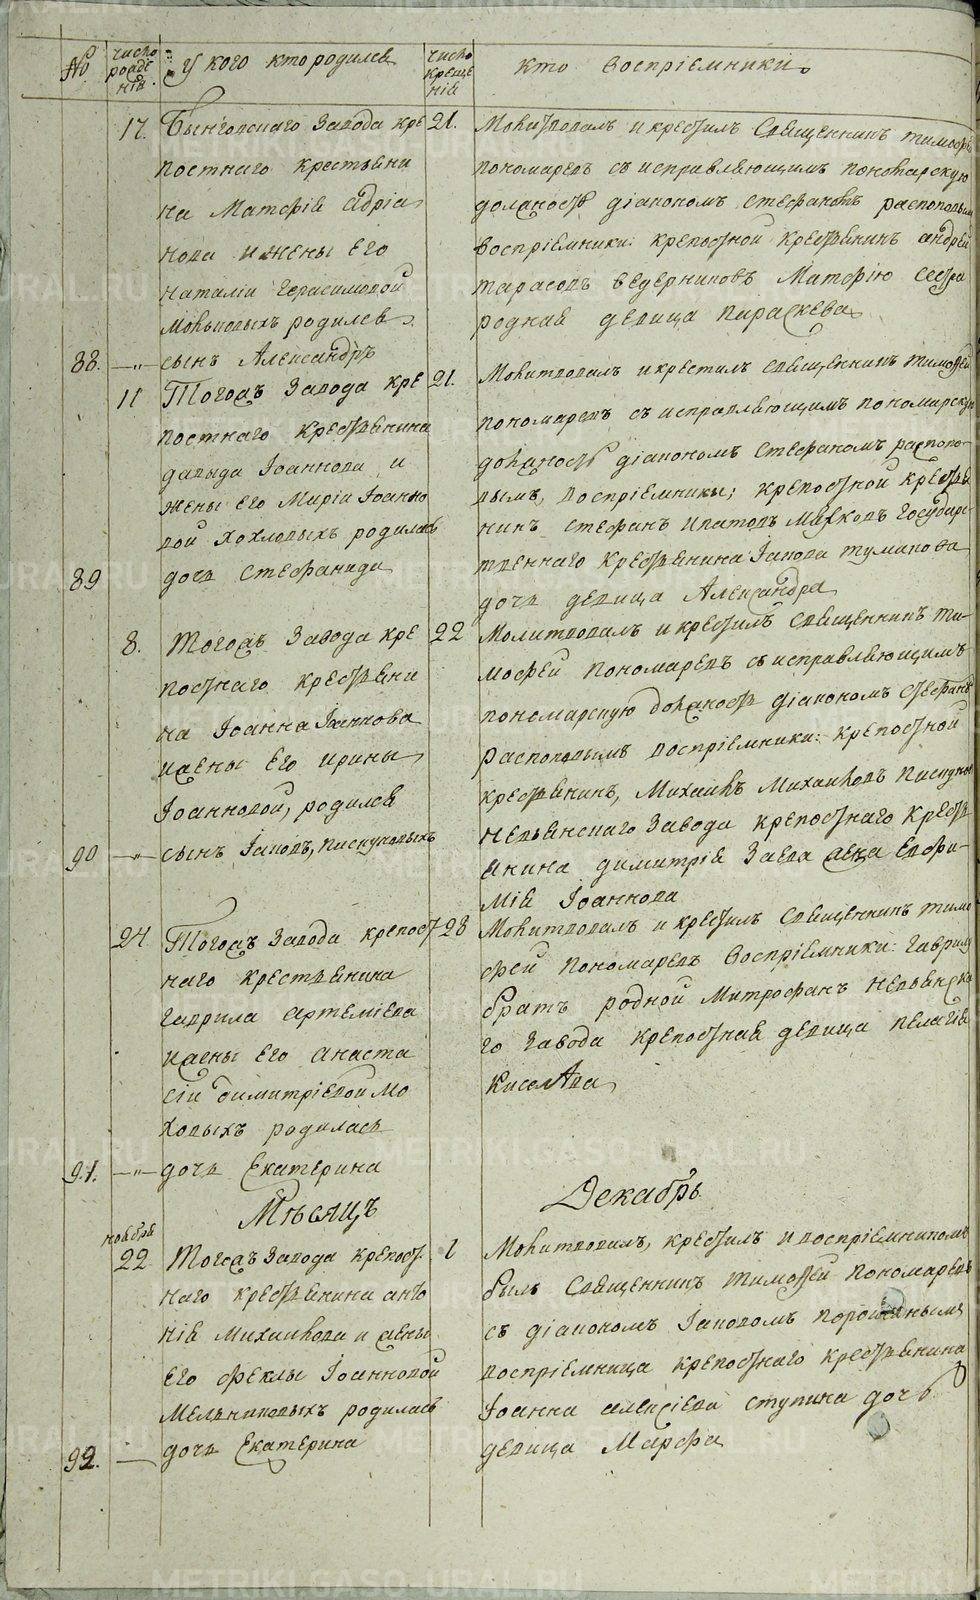 № число рождЕ нія У кого кто родился число крещЕ нія Кто Воспріемники
17. Быньговскаго Завода кре 21.
постнаго крестьяни
на Матфія Адріа
нова и жены Его
Наталіи Герасимовой
родился
88. —"— сынъ Александръ
Молитвовалъ и крестилъ Священникъ Тимофей
Пономаревъ съ исправляющимъ пономарскую
должность діакономъ Стефаномъ Распоповымъ
Воспріемники: крепостной крестьянинъ Андрей
Тарасовъ Ведерниковъ Матфію сестра
родная девица Параскева
11 Тогожъ Завода кре 21.
постнаго крестьянина
Давыда Іоаннова и
жены его Маріи Іоанно
вой Хохловыхъ родилась
89 дочь Стефанида
Молитвовалъ и крестилъ священникъ Тимофей
Пономаревъ съ исправляющимъ пономарскую
должность діакономъ Стефаномъ Распопо-
вымъ, воспріемники; крепостной крестья
нинъ Стефанъ Ипатовъ Государс-
твеннаго крестьянина Іакова Туманова
дочь девица Александра
8. Тогожъ Завода кре 22
постнаго крестьяни
на Іоанна Іаннова
ижены Его Ирины
Іоанновой, родился
90 —"— сынъ Іаковъ, Пискуновыхъ
Молитвовалъ и крестилъ священникъ Ти-
мофей Пономаревъ съ исправляющимъ
пономарскую должность діакономъ Стефаномъ
Распоповымъ воспріемники: крепостной
крестьянинъ, Михаилъ Михаиловъ Пискуновъ
Невьянскаго Завода крепостнаго Кресть
янина Димитрія жена Евфи-
мія Іоаннова
24. Тогожъ Завода крепост 28
наго крестьянина
Гаврила Артеміева
ижены Его Анаста
сіи Димитріевой Мо
ховыхъ родилась
91. —"— дочь Екатерина
Молитвовалъ и крестилъ Священникъ Тимо
фей Пономаревъ Воспріемники: Гаврилу
братъ родной Митрофанъ Невьянска
го Завода крепостная девица Пелагія
Киселева
Мѣсяцъ Декабрь
ноября
22 Тогожъ Завода крепост- 1
наго крестьянина Анто
нія Михаилова и жены
Его Феклы Іоанновой
Мельниковыхъ родилась
92. — дочь Екатерина
Молитвовалъ, крестилъ и воспріемникомъ
былъ Священникъ Тимофей Пономаревъ
съ діакономъ Іаковомъ
воспріемница крепостнаго крестьянина
Іоанна Алексіева Ступина дочь
девица Марфа
METRIKI.GASO-URAL.RU